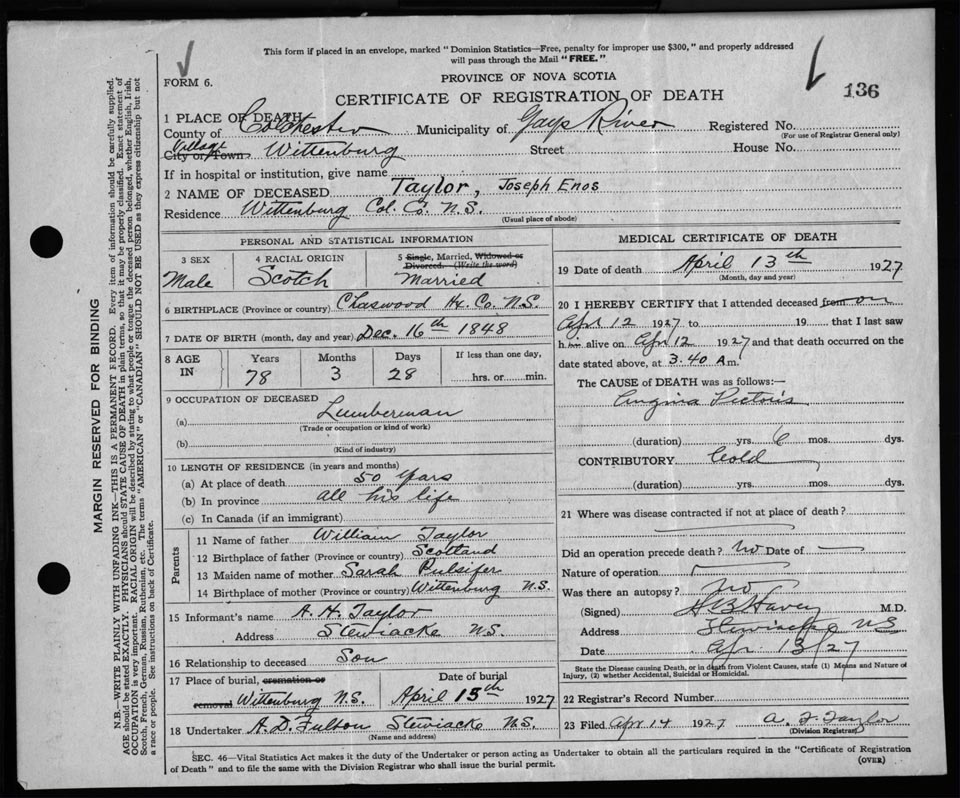 This form if placed in an envelope, marked "Dominion Statistics—Free, penalty for improper use $300," and properly addressed
will pass through the Mail "FREE."
FORM 6.
PROVINCE OF NOVA SCOTIA
136
CERTIFICATE OF REGISTRATION OF DEATH
1 PLACE OF DEATH
County of Colchester Municipality of Gays River Registered No.
(For use of Registrar General only)
Village
City or Town Wittenburg Street House No.
If in hospital or institution, give name
2 NAME OF DECEASED Taylor, Joseph Enos
Residence Wittenburg Col. Co. N.S.
(Usual place of abode)
PERSONAL AND STATISTICAL INFORMATION
3 SEX 4 RACIAL ORIGIN 5 Single, Married, Widowed or
Divorced. (Write the word)
Male Scotch Married
6 BIRTHPLACE (Province or country) Chaswood Hx. Co. N.S.
7 DATE OF BIRTH (month, day and year) Dec. 16th 1848
8 AGE IN Years Months Days If less than one day,
78 3 28 hrs. or min.
9 OCCUPATION OF DECEASED
(a) Lumberman
(Trade or occupation or kind of work)
(b)
(Kind of industry)
10 LENGTH OF RESIDENCE (in years and months)
(a) At place of death 50 years
(b) In province all his life
(c) In Canada (if an immigrant)
Parents
11 Name of father William Taylor
12 Birthplace of father (Province or country) Scotland
13 Maiden name of mother Sarah Pulsifer
14 Birthplace of mother (Province or country) Wittenburg N.S.
15 Informant's name A. H. Taylor
Address Stewiacke N.S.
16 Relationship to deceased Son
17 Place of burial, cremation or Date of burial
removal Wittenburg N.S. April 15th 1927
18 Undertaker A. D. Fulton Stewiacke N.S.
(Name and address)
MEDICAL CERTIFICATE OF DEATH
19 Date of death April 13th 1927
(Month, day and year)
20 I HEREBY CERTIFY that I attended deceased from on
Apr 12 1927 to 19 that I last saw
him alive on Apr 12 1927 and that death occurred on the
date stated above, at 3.40 A m.
The CAUSE of DEATH was as follows:—
Angina Pectoris
(duration) yrs. 6 mos. dys.
CONTRIBUTORY Cold
(duration) yrs. mos. dys.
21 Where was disease contracted if not at place of death?
Did an operation precede death? No Date of
Nature of operation
Was there an autopsy? No
(Signed) H B Havey M.D.
Address Stewiacke N S
Date Apr 13/27
State the Disease causing Death, or in death from Violent Causes, state (1) Means and Nature of
Injury, (2) whether Accidental, Suicidal or Homicidal.
22 Registrar's Record Number
23 Filed Apr 14 1927 A. F. Taylor
(Division Registrar)
SEC. 46—Vital Statistics Act makes it the duty of the Undertaker or person acting as Undertaker to obtain all the particulars required in the "Certificate of Registration
of Death" and to file the same with the Division Registrar who shall issue the burial permit.
(OVER)
MARGIN RESERVED FOR BINDING
N.B.—WRITE PLAINLY WITH UNFADING INK—THIS IS A PERMANENT RECORD. Every item of information should be carefully supplied.
AGE should be stated EXACTLY. PHYSICIANS should STATE CAUSE OF DEATH in plain terms, so that it may be properly classified. Exact statement of
OCCUPATION is very important. RACIAL ORIGIN will be described by stating to what people or tongue the deceased person belonged, whether English, Irish,
Scotch, French, German, Russian, Ruthenian, etc. The terms "AMERICAN" or "CANADIAN" SHOULD NOT BE USED as they express citizenship but not
a race or people. See instructions on back of Certificate.